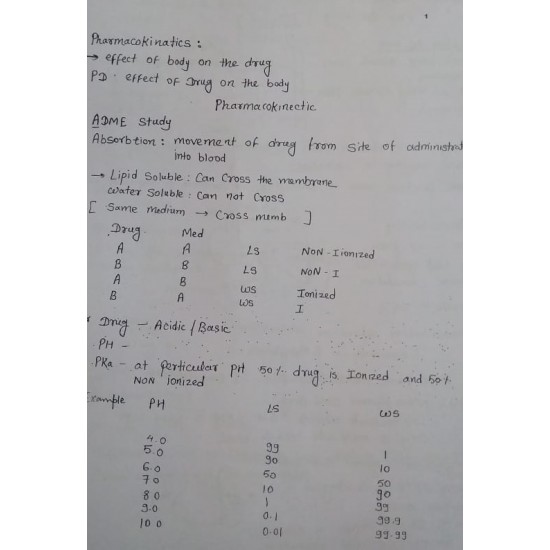 1
Pharmacokinatics :
→ effect of body on the drug
PD : effect of Drug on the body
Pharmacokinectic
ADME Study
Absorbtion : movement of drug from site of administrat
into blood
→ Lipid Soluble : Can Cross the membrane
Water Soluble : Can not Cross
[ Same medium → Cross memb ]
Drug Med
A A LS NON - Iionized
B B LS NON - I
A B WS Ionized
B A WS I
Drug - Acidic / Basic
PH -
PKa - at perticular PH 50% drug is Ionized and 50%
NON ionized
Example PH LS WS
4.0 99 1
5.0 90 10
6.0 50 50
7.0 10 90
8.0 1 99
9.0 0.1 99.9
10.0 0.01 99.99